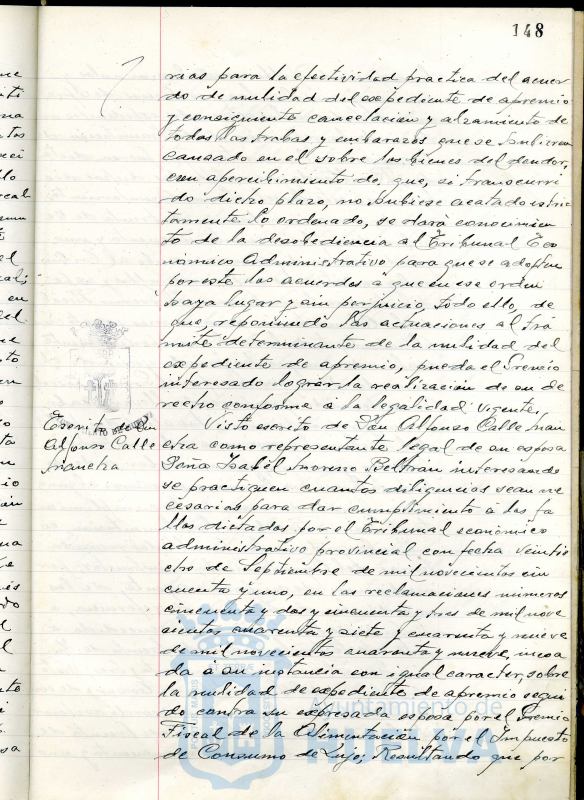 148
rias para la efectividad practica del acuer
do de nulidad del expediente de apremio
y consiguiente cancelación y alzamiento de
todas las trabas y embarazos que se hubieren
causado en el sobre los bienes del deudor,
con apercibimiento de que, si transcurri
do dicho plazo, no hubiese acatado estric
tamente lo ordenado, se dará conocimien
to de la desobediencia al Tribunal Eco
nómico Administrativo para que se adopten
por este los acuerdos a que en ese orden
haya lugar y sin perjuicio, todo ello, de
que, reponiendo las actuaciones al trá
mite determinante de la nulidad del
expediente de apremio, pueda el Gremio
interesado lograr la realización de su de
recho conforme a la legalidad vigente.
Escrito de Don
Alfonso Calle
Mancha
Visto escrito de Don Alfonso Calle Man
cha como representante legal de su esposa
Doña Isabel Moreno Beltran interesando
se practiquen cuantas diligencias sean ne
cesarias para dar cumplimiento a los fa
llos dictados por el Tribunal económico
administrativo provincial con fecha veinti
ocho de Septiembre de mil novecientos cin
cuenta y uno, en las reclamaciones números
cincuenta y dos y cincuenta y tres de mil nove
cientos cuarenta y siete y cuarenta y nueve
de mil novecientos cuarenta y nueve, incoa
da a su instancia con igual caracter, sobre
la nulidad de expediente de apremio segui
do contra su expresada esposa por el Gremio
Fiscal de la Alimentación por el Impuesto
de Consumo de Lujo; Resultando que por
Ayuntamiento de
HUELVA